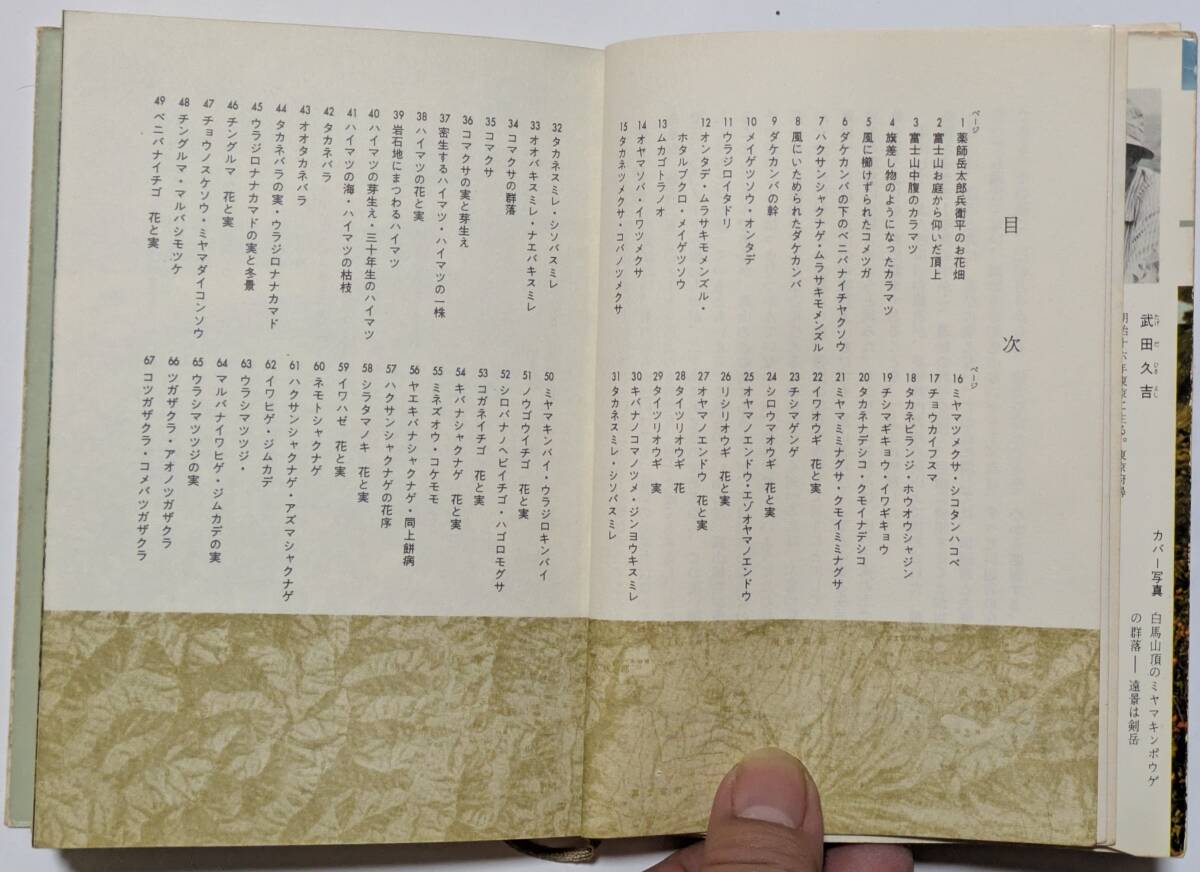 目次
ページ
1 薬師岳太郎兵衛平のお花畑
2 富士山お庭から仰いだ頂上
3 富士山中腹のカラマツ
4 旗差し物のようになったカラマツ
5 風に櫛けずられたコメツガ
6 ダケカンバの下のベニバナイチヤクソウ
7 ハクサンシャクナゲ・ムラサキモメンズル
8 風にいためられたダケカンバ
9 ダケカンバの幹
10 メイゲツソウ・オンタデ
11 ウラジロイタドリ
12 オンタデ・ムラサキモメンズル・
ホタルブクロ・メイゲツソウ
13 ムカゴトラノオ
14 オヤマソバ・イワツメクサ
15 タカネツメクサ・コバノツメクサ
ページ
16 ミヤマツメクサ・シコタンハコベ
17 チョウカイフスマ
18 タカネビランジ・ホウオウシャジン
19 チシマギキョウ・イワギキョウ
20 タカネナデシコ・クモイナデシコ
21 ミヤマミミナグサ・クモイミミナグサ
22 イワオウギ 花と実
23 チシマゲンゲ
24 シロウマオウギ 花と実
25 オヤマノエンドウ・エゾオヤマノエンドウ
26 リシリオウギ 花と実
27 オヤマノエンドウ 花と実
28 タイツリオウギ 花
29 タイツリオウギ 実
30 キバナノコマノツメ・ジンヨウキスミレ
31 タカネスミレ・シソバスミレ
32 タカネスミレ・シソバスミレ
33 オオバキスミレ・ナエバキスミレ
34 コマクサの群落
35 コマクサ
36 コマクサの実と芽生え
37 密生するハイマツ・ハイマツの一株
38 ハイマツの花と実
39 岩石地にまつわるハイマツ
40 ハイマツの芽生え・三十年生のハイマツ
41 ハイマツの海・ハイマツの枯枝
42 タカネバラ
43 オオタカネバラ
44 タカネバラの実・ウラジロナナカマド
45 ウラジロナナカマドの実と冬景
46 チングルマ 花と実
47 チョウノスケソウ・ミヤマダイコンソウ
48 チングルマ・マルバシモツケ
49 ベニバナイチゴ 花と実
50 ミヤマキンバイ・ウラジロキンバイ
51 ノウゴウイチゴ 花と実
52 シロバナノヘビイチゴ・ハゴロモグサ
53 コガネイチゴ 花と実
54 キバナシャクナゲ 花と実
55 ミネズオウ・コケモモ
56 ヤエキバナシャクナゲ・同上餅病
57 ハクサンシャクナゲの花序
58 シラタマノキ 花と実
59 イワハゼ 花と実
60 ネモトシャクナゲ
61 ハクサンシャクナゲ・アズマシャクナゲ
62 イワヒゲ・ジムカデ
63 ウラシマツツジ・
64 マルバナイワヒゲ・ジムカデの実
65 ウラシマツツジの実
66 ツガザクラ・アオノツガザクラ
67 コツガザクラ・コメバツガザクラ
武田久吉
明治十六年東京に生る。東京府
カバー写真 白馬山頂のミヤマキンポウゲ
の群落――遠景は剣岳